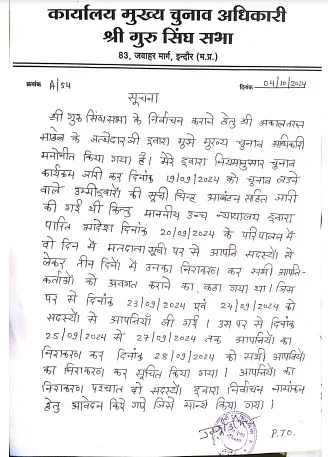 कार्यालय मुख्य चुनाव अधिकारी
श्री गुरु सिंघ सभा
83, जवाहर मार्ग, इन्दौर (म.प्र.)
क्रमांक A/54 दिनांक 04/10/2024
सूचना
श्री गुरु सिंघ सभा के निर्वाचन कराने हेतु श्री अकालतख्त
साहेब के जत्थेदार जी द्वारा मुझे मुख्य चुनाव अधिकारी
मनोनीत किया गया है। मेरे द्वारा नियमानुसार चुनाव
कार्यक्रम जारी कर दिनांक 19/09/2024 को चुनाव लडने
वाले उम्मीद्वारों की सूची चिन्ह आबंटन सहित जारी
की गई थी किन्तु माननीय उच्च न्यायालय द्वारा
पारित आदेश दिनांक 20/09/2024 के परिपालन में
दो दिन में मतदाता सूची पर से आपत्ति सदस्यों से
लेकर तीन दिनों में उनका निराकरण कर सभी आपत्ति-
कर्ताओं को अवगत कराने का कहा गया था। जिस
पर से दिनांक 23/09/2024 एवं 24/09/2024 को
सदस्यों से आपत्तियाँ ली गई। उस पर से दिनांक
25/09/2024 से 27/09/2024 तक आपत्तियों का
निराकरण कर दिनांक 28/09/2024 को सभी आपत्तियों
का निराकरण कर सूचित किया गया। आपत्तियों का
निराकरण पश्चात दो सदस्यों द्वारा निर्वाचन नामांकन
हेतु आवेदन किये गये जिसे मान्य किया गया।
P.T.O.